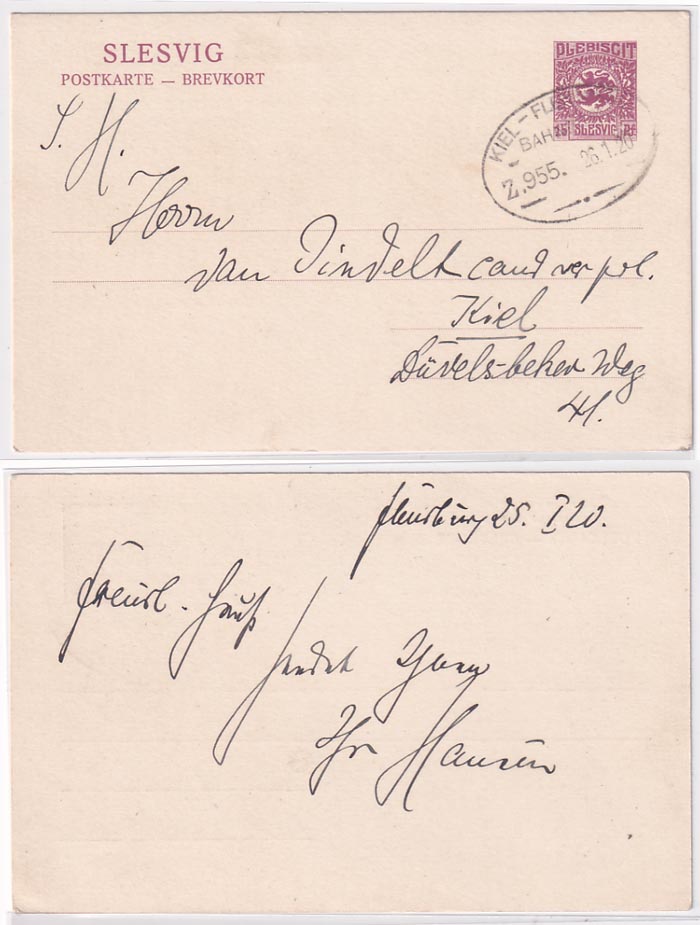 SLESVIG
POSTKARTE — BREVKORT
PLEBISCIT
15 SLESVIG Pf
KIEL - FL
BAH
Z.955. 26.1.20
S. H.
Herrn
van Dindelt cand rer pol.
Kiel
Düvelsbeker Weg
41.
Flensburg 25. I 20.
Freundl. Gruß
sendet Ihnen
Ihr Hansen